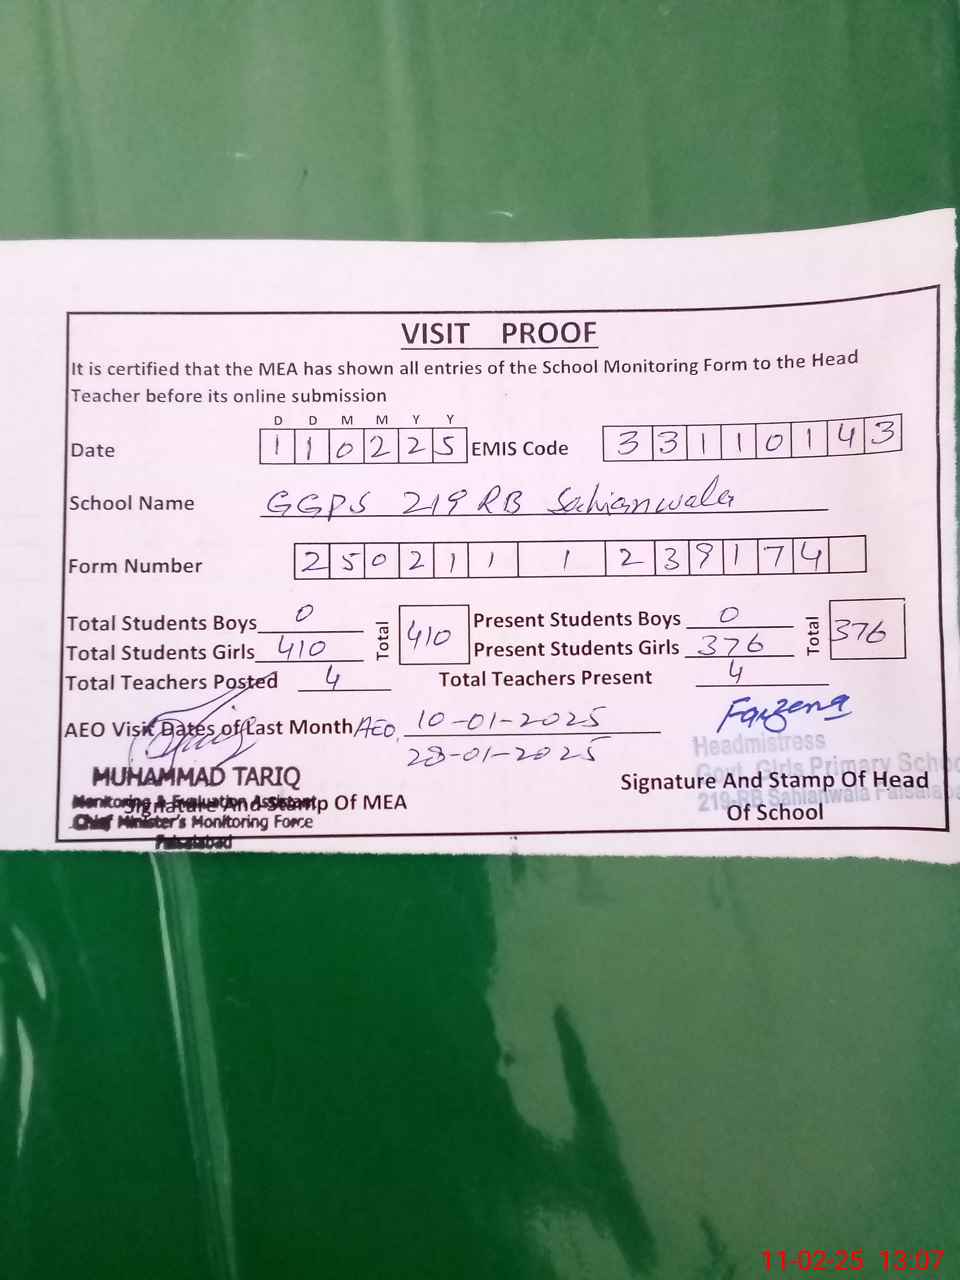 VISIT PROOF
It is certified that the MEA has shown all entries of the School Monitoring Form to the Head
Teacher before its online submission
D D M M Y Y
Date 1 1 0 2 2 5 EMIS Code 3 3 1 1 0 1 4 3
School Name GGPS 219 RB Sahianwala
Form Number 2 5 0 2 1 1 1 2 3 9 1 7 4
Total Students Boys 0 Total 410 Present Students Boys 0 Total 376
Total Students Girls 410 Present Students Girls 376
Total Teachers Posted 4 Total Teachers Present 4
AEO Visit Dates of Last Month AEO. 10-01-2025
28-01-2025
Headmistress
Govt. Girls Primary Scho
219-RB Sahianwala Faisalaba
MUHAMMAD TARIQ
Monitoring & Evaluation Assistant
Chief Minister's Monitoring Force
Faisalabad
Signature And Stamp Of MEA
Signature And Stamp Of Head
Of School
11-02-25 13:07